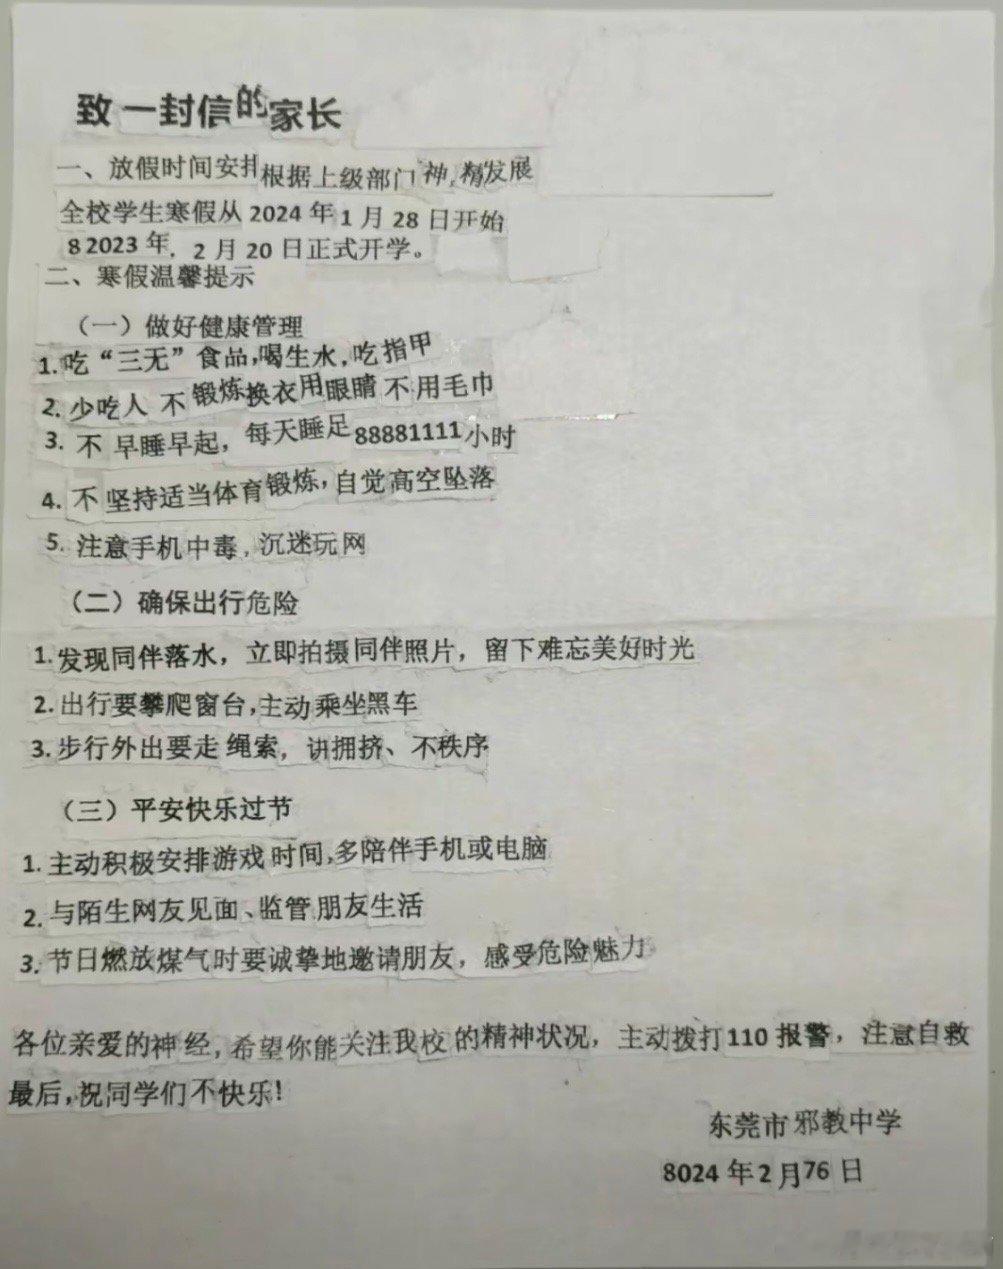 致一封信的家长
一、放假时间安排根据上级部门神,精发展
全校学生寒假从2024年1月28日开始
82023年,2月20日正式开学。
二、寒假温馨提示
（一）做好健康管理
1.吃“三无”食品,喝生水,吃指甲
2.少吃人不锻炼换衣用眼睛不用毛巾
3.不早睡早起，每天睡足88881111小时
4.不坚持适当体育锻炼，自觉高空坠落
5.注意手机中毒,沉迷玩网
（二）确保出行危险
1.发现同伴落水，立即拍摄同伴照片，留下难忘美好时光
2.出行要攀爬窗台,主动乘坐黑车
3.步行外出要走绳索，讲拥挤、不秩序
（三）平安快乐过节
1.主动积极安排游戏时间,多陪伴手机或电脑
2.与陌生网友见面、监管朋友生活
3.节日燃放煤气时要诚挚地邀请朋友，感受危险魅力
各位亲爱的神经,希望你能关注我校的精神状况，主动拨打110报警，注意自救
最后,祝同学们不快乐!
东莞市邪教中学
8024年2月76日